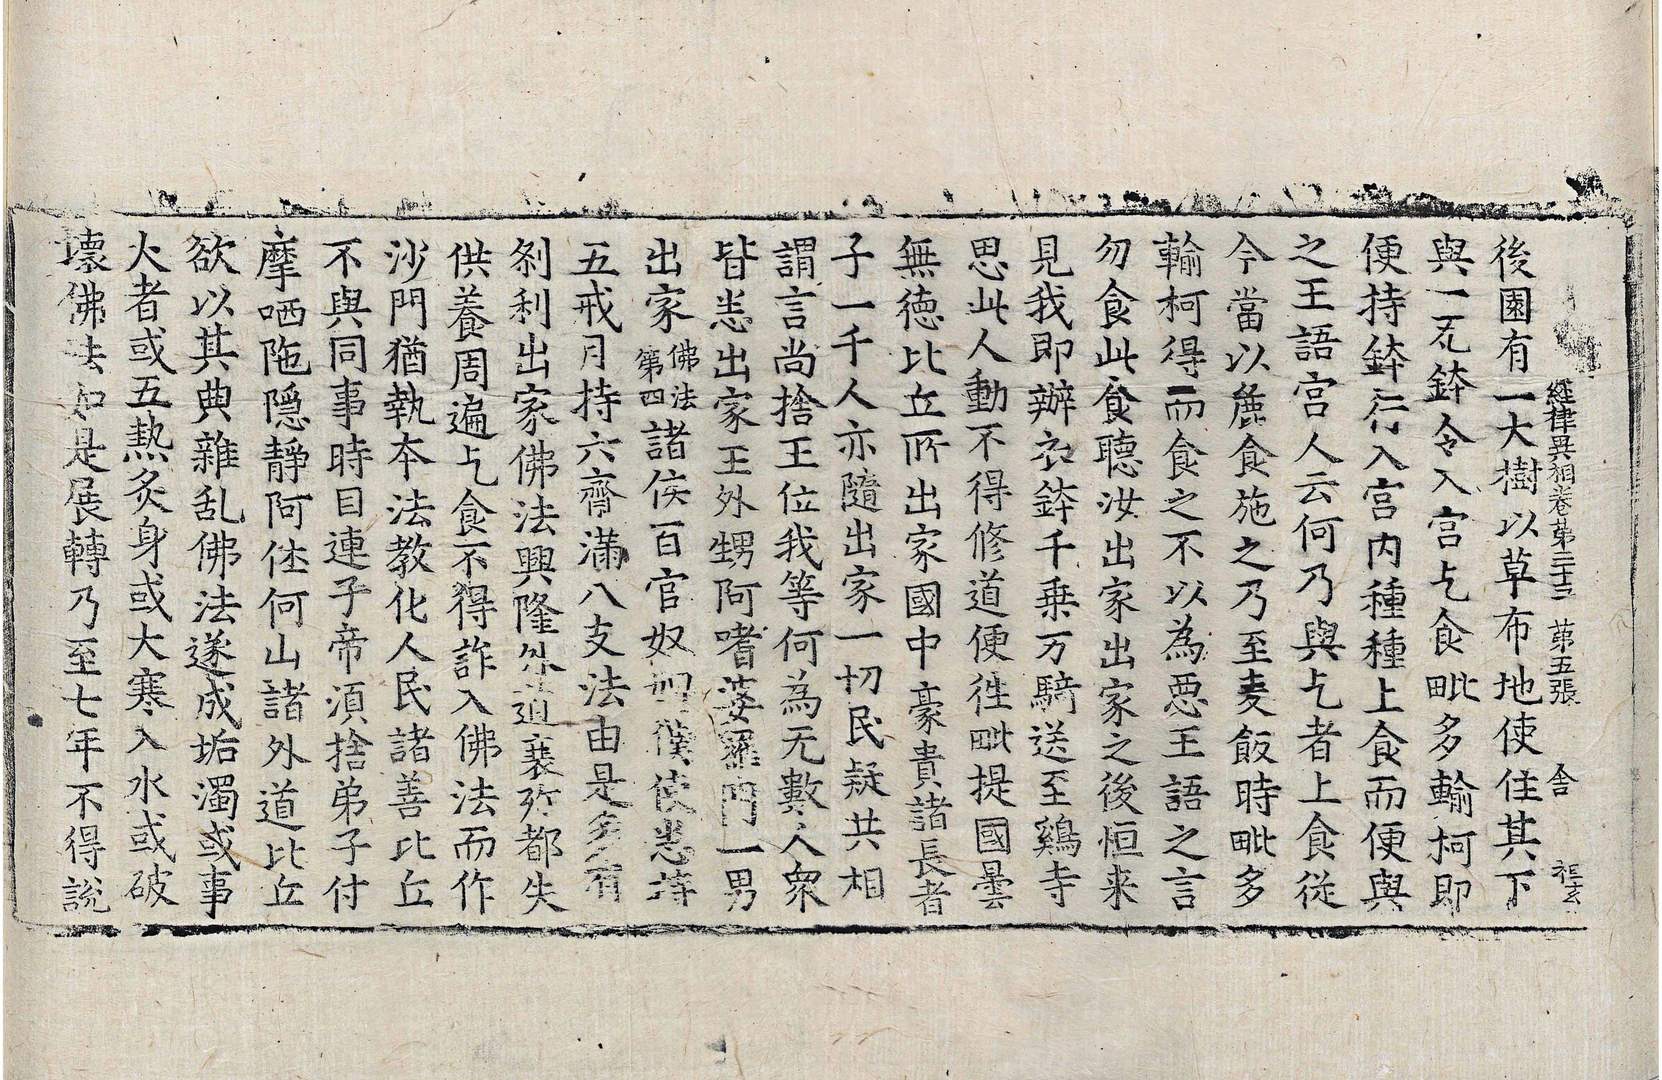 經律異相卷第二十三 第五張 舍
後園有一大樹以草布地使住其下
與一瓦鉢令入宮乞食毗多輸柯即
便持鉢行入宮内種種上食而便與
之王語宮人云何乃與乞者上食從
今當以麁食施之乃至麦飯時毗多
輸柯得而食之不以為惡王語之言
勿食此食聽汝出家出家之後恒来
見我即辦衣鉢千乗万騎送至鷄寺
思此人動不得修道便徃毗提國曇
無德比丘所出家國中豪貴諸長者
子一千人亦隨出家一切民疑共相
謂言尚捨王位我等何為无數人衆
皆悉出家王外甥阿嗜婆羅門一男
出家佛法第四諸侯百官奴婢僕使悉持
五戒月持六齋滿八支法由是多有
刹利出家佛法興隆外道衰殄都失
供養周遍乞食不得詐入佛法而作
沙門猶執本法教化人民諸善比丘
不與同事時目連子帝湏捨弟子付
摩哂陁隱靜阿烋何山諸外道比丘
欲以其典雜乱佛法遂成垢濁或事
火者或五熱炙身或大寒入水或破
壊佛法如是展轉乃至七年不得說